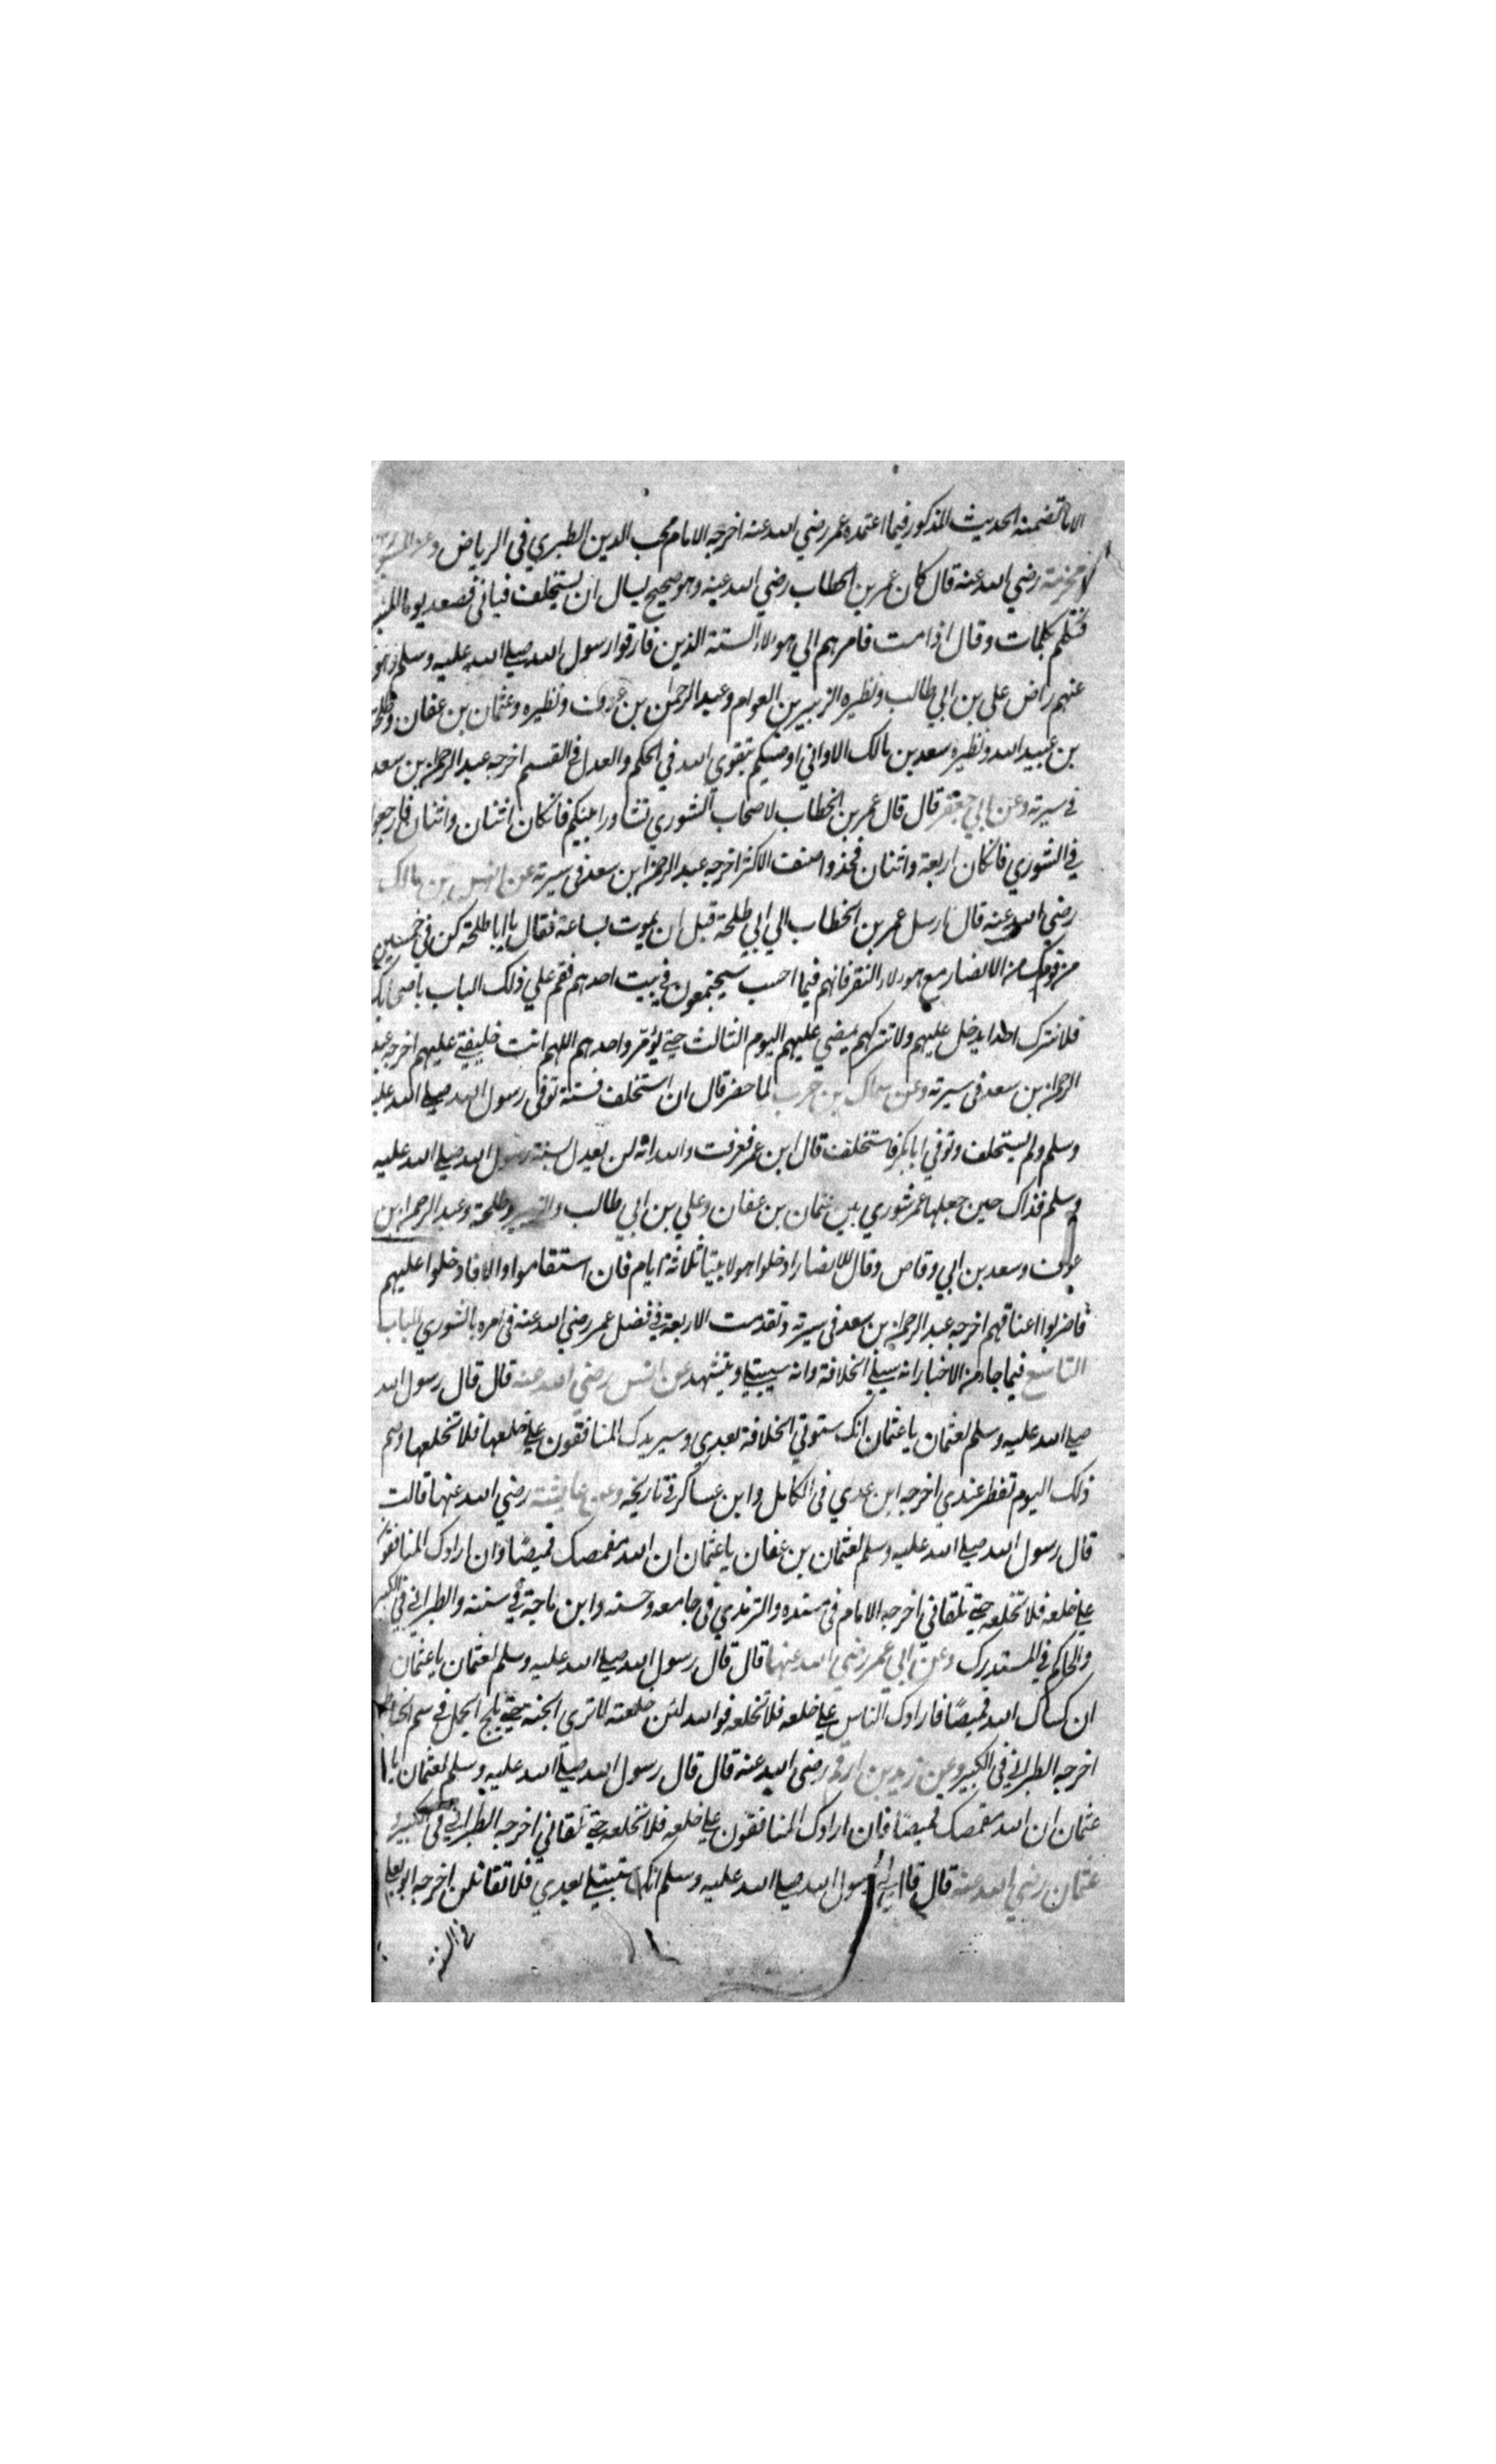 الا ما تضمنه الحديث المذكور فيما اعتمده عمر رضي الله عنه اخرجه الامام محب الدين الطبري في الرياض وعن
مخرمة رضي الله عنه قال كان عمر بن الخطاب رضي الله عنه وهو صحيح يسال ان يستخلف فيابى فصعد يوما المنبر
فتكلم بكلمات وقال اذا مت فامرهم الي هولاء الستة الذين فارقوا رسول الله صلي الله عليه وسلم وهو
عنهم راض علي بن ابي طالب ونظيره الزبير بن العوام وعبد الرحمن بن عوف ونظيره وعثمان بن عفان وطلحة
بن عبيد الله ونظيره سعد بن مالك الا واني اوصيكم بتقوي الله في الحكم والعدل في القسم اخرجه عبد الرحمن بن سعد
في سيرته وعن ابي جعفر قال قال عمر بن الخطاب لاصحاب الشوري تشاورا بينكم فانكان اثنان واثنان فارجعوا
في الشوري فانكان اربعة واثنان فخذوا صنف الاكثر اخرجه عبد الرحمن بن سعد في سيرته عن انس بن مالك
رضي الله عنه قال ارسل عمر بن الخطاب الي ابي طلحة قبل ان يموت بساعة فقال يا ابا طلحة كن في خمسين
من قومك من الانصار مع هولاء النفر فانهم فيما احسب سيجتمعون في بيت احدهم فقم علي ذلك الباب باصحابك
فلا تترك احدا يدخل عليهم ولا تتركهم يمضي عليهم اليوم الثالث حتي يؤمر واحدهم اللهم انت خليفتي عليهم اخرجه عبد
الرحمن بن سعد في سيرته وعن سماك بن حرب لما حضر قال ان استخلف فسنة توفي رسول الله صلي الله عليه
وسلم ولم يستخلف وتوفي ابابكر فاستخلف قال ابن عمر فعرفت والله انه لن يعدل بسنة رسول الله صلي الله عليه
وسلم فذاك حين جعلها عمر شوري بين عثمان بن عفان وعلي بن ابي طالب والزبير وطلحة وعبد الرحمن بن
عوف وسعد بن ابي وقاص وقال للانصار ادخلوا هولا بيتا ثلاثة ايام فان استقاموا والا فادخلوا عليهم
فاضربوا اعناقهم اخرجه عبد الرحمن بن سعد في سيرته وتقدمت الاربعة في فضل عمر رضي الله عنه في امره بالشوري الباب
التاسع فيما جاء من الاخبار انه سيلي الخلافة وانه سيبتلي ويتشهد عن انس رضي الله عنه قال قال رسول الله
صلي الله عليه وسلم لعثمان يا عثمان انك ستوتي الخلافة بعدي وسيريدك المنافقون علي خلعها فلا تخلعها وصم
ذلك اليوم تفطر عندي اخرجه ابن عدي في الكامل وابن عساكر في تاريخه وعن عايشة رضي الله عنها قالت
قال رسول الله صلي الله عليه وسلم لعثمان بن عفان يا عثمان ان الله مقمصك قميصًا وان ارادك المنافقون
علي خلعه فلا تخلعه حتي تلقاني اخرجه الامام في مسنده والترمذي في جامعه وحسنه وابن ماجة في سننه والطبراني في الكبير
والحاكم في المستدرك وعن ابي عمر رضي الله عنهما قال قال رسول الله صلي الله عليه وسلم لعثمان يا عثمان
ان كساك الله قميصًا فارادك الناس علي خلعه فلا تخلعه فوالله لئن خلعته لا تري الجنة حتي يلج الجمل في سم الخياط
اخرجه الطبراني في الكبير وعن زيد بن ارقم رضي الله عنه قال قال رسول الله صلي الله عليه وسلم لعثمان يا
عثمان ان الله مقمصك قميصًا فان ارادك المنافقون علي خلعه فلا تخلعه حتي تلقاني اخرجه الطبراني في الكبير
عثمان رضي الله عنه قال قال لي رسول الله صلي الله عليه وسلم انك ستبتلي بعدي فلا تقاتلن اخرجه ابو يعلي
في السنة